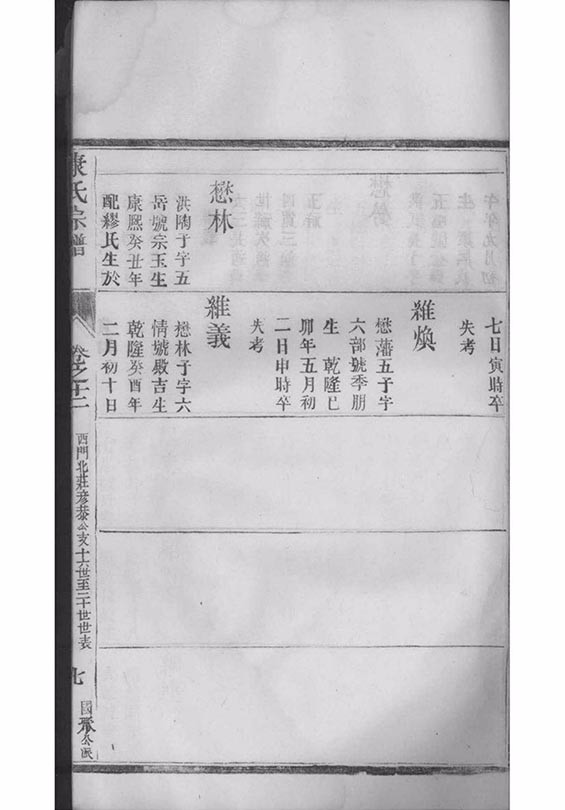 七日寅時卒
失考
維煥
懋藩五子字
六部號季朋
生 乾隆己
卯年五月初
二日申時卒
失考
懋林
洪陶子字五
岳號宗玉生
康熙癸丑年
配繆氏生於
維義
懋林子字六
情號殿吉生
乾隆癸酉年
二月初十日
康氏宗譜
卷之十二
西門北莊彥恭公支十六世至二十世世表
七